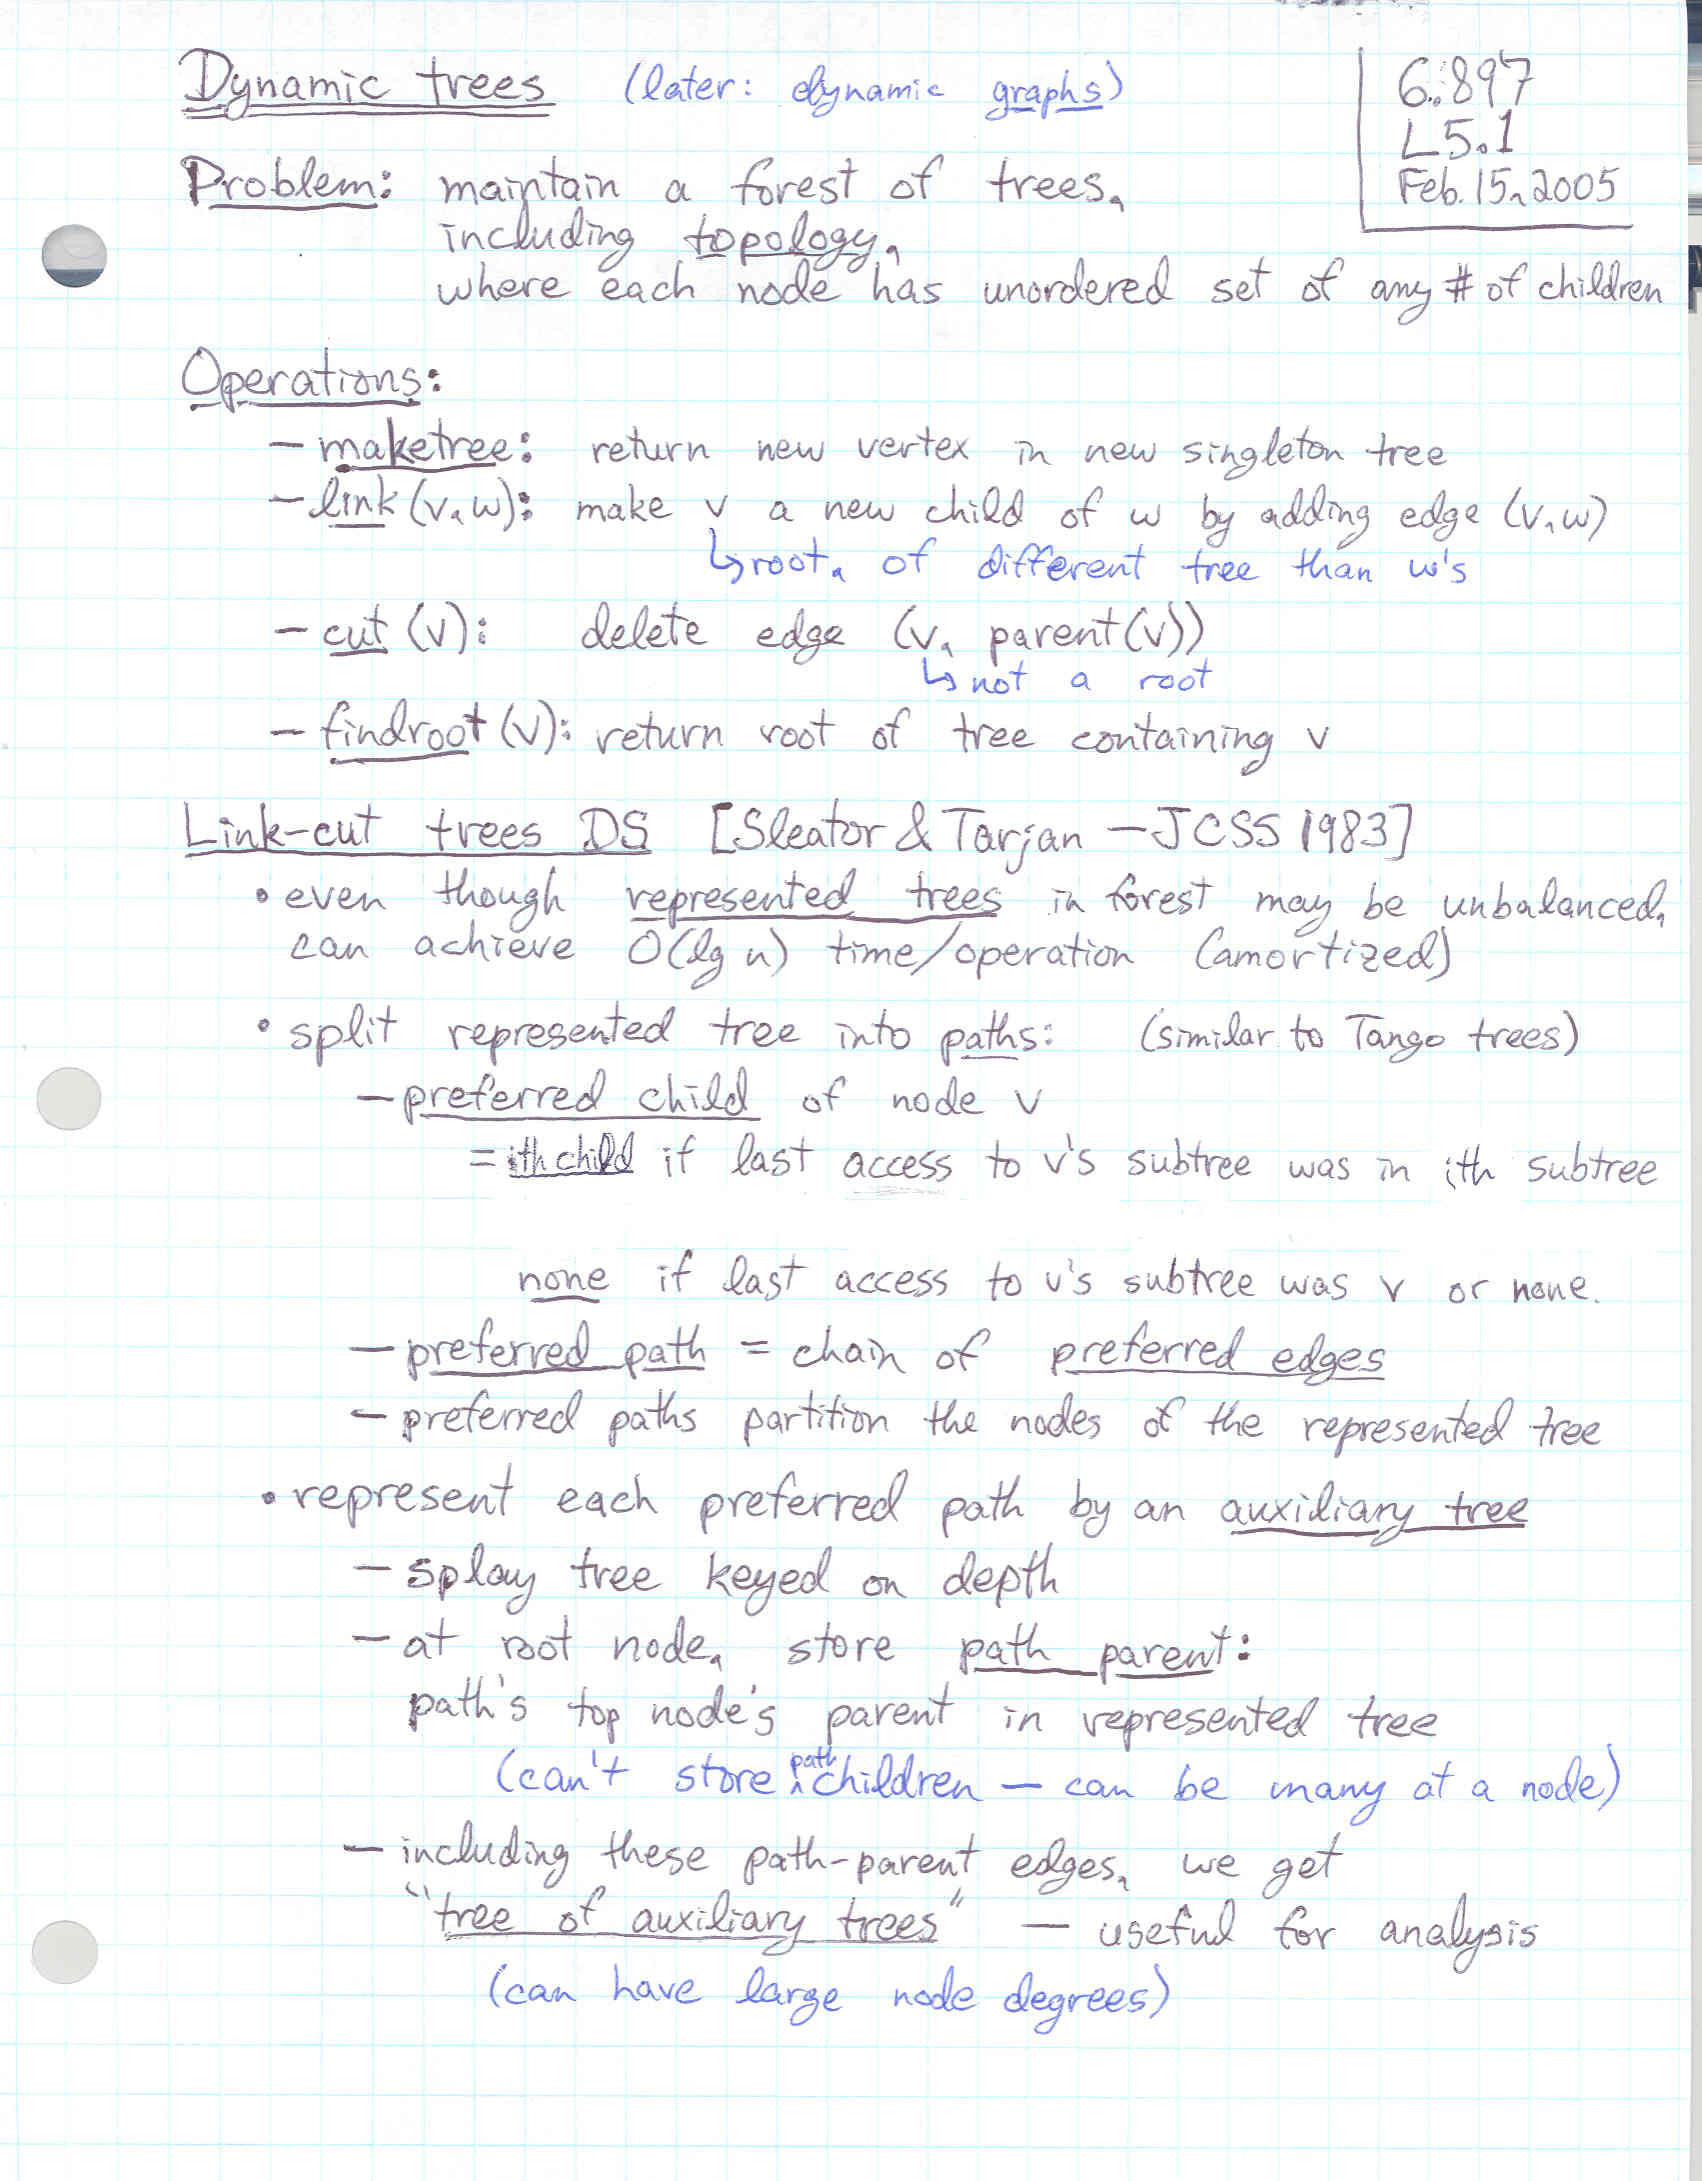 Dynamic trees (later: dynamic graphs)
6.897
L5.1
Feb. 15, 2005
Problem: maintain a forest of trees,
including topology,
where each node has unordered set of any # of children
Operations:
- maketree: return new vertex in new singleton tree
- link(v,w): make v a new child of w by adding edge (v,w)
↳ root, of different tree than w's
- cut(v): delete edge (v, parent(v))
↳ not a root
- findroot(v): return root of tree containing v
Link-cut trees DS [Sleator & Tarjan - JCSS 1983]
• even though represented trees in forest may be unbalanced,
can achieve O(lg n) time/operation (amortized)
• split represented tree into paths: (similar to Tango trees)
- preferred child of node v
= ith child if last access to v's subtree was in ith subtree
none if last access to v's subtree was v or none.
- preferred path = chain of preferred edges
- preferred paths partition the nodes of the represented tree
• represent each preferred path by an auxiliary tree
- splay tree keyed on depth
- at root node, store path parent:
path's top node's parent in represented tree
(can't store path children - can be many at a node)
- including these path-parent edges, we get
"tree of auxiliary trees" - useful for analysis
(can have large node degrees)